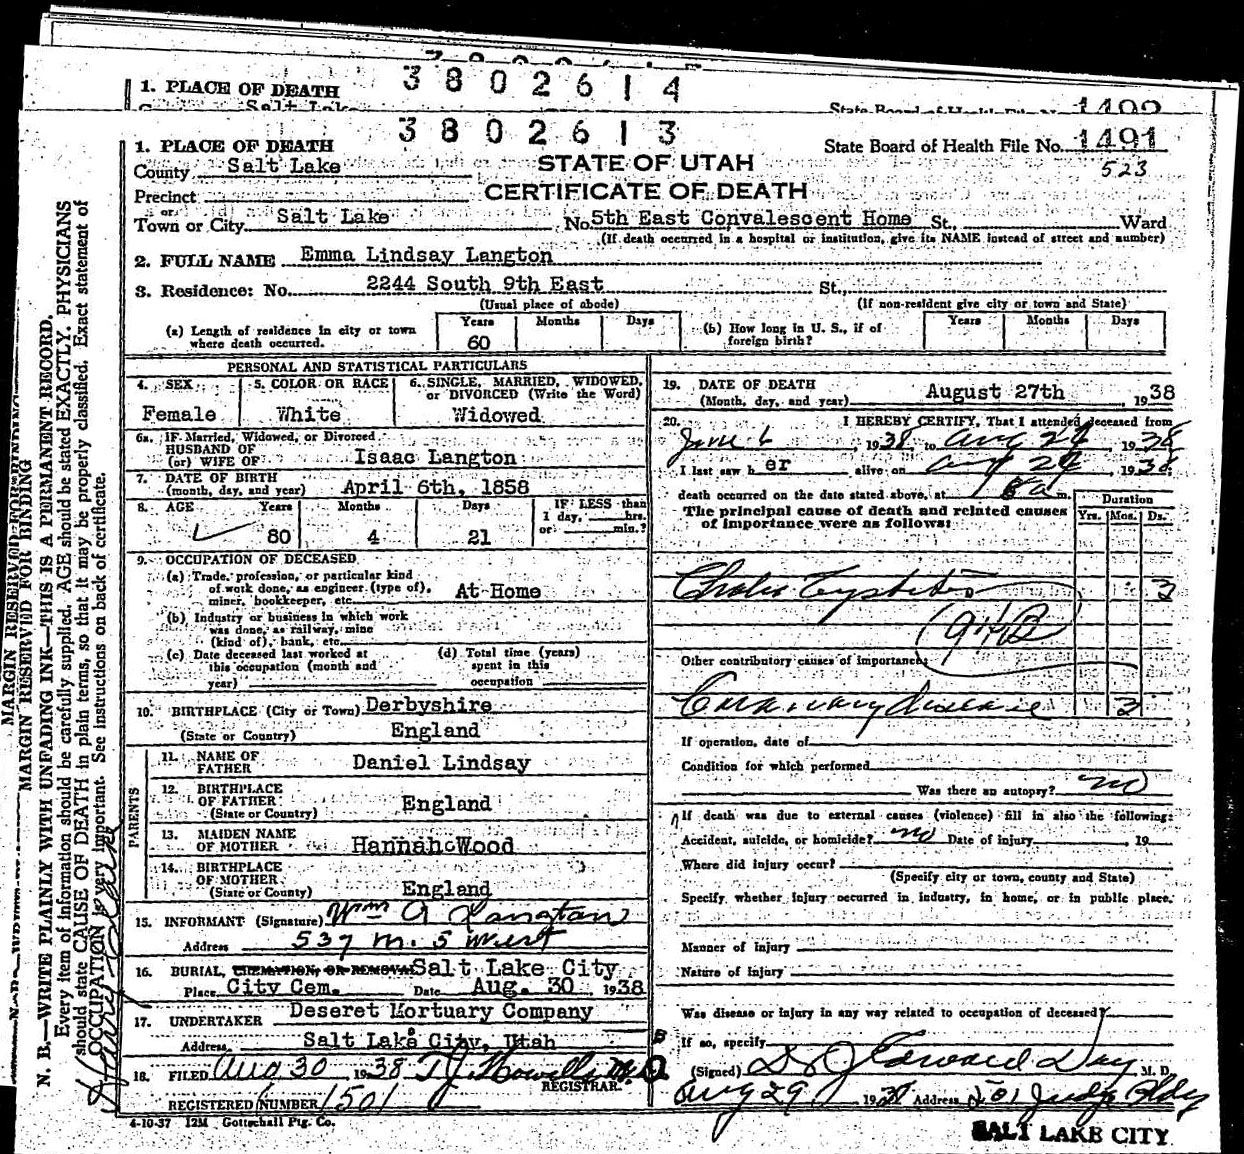 3802614
1. PLACE OF DEATH
Salt Lake
State Board of Health File No. 1492
3802613
1. PLACE OF DEATH
STATE OF UTAH
State Board of Health File No. 1491
County Salt Lake
CERTIFICATE OF DEATH
523
Precinct
or
Town or City Salt Lake No. 5th East Convalescent Home St., Ward
(If death occurred in a hospital or institution, give its NAME instead of street and number)
2. FULL NAME Emma Lindsay Langton
3. Residence: No. 2244 South 9th East St.,
(Usual place of abode) (If non-resident give city or town and State)
(a) Length of residence in city or town where death occurred. Years 60 Months Days
(b) How long in U. S., if of foreign birth? Years Months Days
PERSONAL AND STATISTICAL PARTICULARS
4. SEX Female
5. COLOR OR RACE White
6. SINGLE, MARRIED, WIDOWED, or DIVORCED (Write the Word) Widowed
6a. IF Married, Widowed, or Divorced
HUSBAND OF
(or) WIFE OF Isaac Langton
7. DATE OF BIRTH
(month, day, and year) April 6th, 1858
8. AGE Years 80 Months 4 Days 21
IF LESS than 1 day, hrs. or min.?
9. OCCUPATION OF DECEASED
(a) Trade, profession, or particular kind
of work done, as engineer (type of),
miner, bookkeeper, etc. At Home
(b) Industry or business in which work
was done, as railway, mine
(kind of), bank, etc.
(c) Date deceased last worked at
this occupation (month and
year)
(d) Total time (years)
spent in this
occupation
10. BIRTHPLACE (City or Town) Derbyshire
(State or Country) England
PARENTS
11. NAME OF
FATHER Daniel Lindsay
12. BIRTHPLACE
OF FATHER England
(State or Country)
13. MAIDEN NAME
OF MOTHER Hannah Wood
14. BIRTHPLACE
OF MOTHER
(State or County) England
15. INFORMANT (Signature) Wm A Langton
Address 537 N. 5 West
16. BURIAL, CREMATION, OR REMOVAL Salt Lake City
Place City Cem. Date Aug. 30 1938
17. UNDERTAKER Deseret Mortuary Company
Address Salt Lake City, Utah
18. FILED Aug 30 1938 T J Howells M.D.
REGISTRAR
REGISTERED NUMBER 1501
4-10-37 12M Gottschall Ptg. Co.
19. DATE OF DEATH
(Month, day, and year) August 27th, 1938
20. I HEREBY CERTIFY, That I attended deceased from
June 6, 1938, to Aug 26, 1938
I last saw her alive on Aug 26, 1938
death occurred on the date stated above, at a m.
The principal cause of death and related causes
of importance were as follows:
Duration
Yrs. Mos. Ds.
Cholecystitis 3
Other contributory causes of importance:
Coronary disease 3
If operation, date of
Condition for which performed
Was there an autopsy? no
If death was due to external causes (violence) fill in also the following:
Accident, suicide, or homicide? no Date of injury, 19
Where did injury occur?
(Specify city or town, county and State)
Specify whether injury occurred in industry, in home, or in public place.
Manner of Injury
Nature of Injury
Was disease or injury in any way related to occupation of deceased?
If so, specify
(Signed) Edward Day M. D.
Aug 29 1938 Address 501 Judge Bldg
SALT LAKE CITY
MARGIN RESERVED FOR BINDING
N. B.—WRITE PLAINLY WITH UNFADING INK—THIS IS A PERMANENT RECORD.
Every item of information should be carefully supplied. AGE should be stated EXACTLY. PHYSICIANS
should state CAUSE OF DEATH in plain terms, so that it may be properly classified. Exact statement of
OCCUPATION is very important. See instructions on back of certificate.